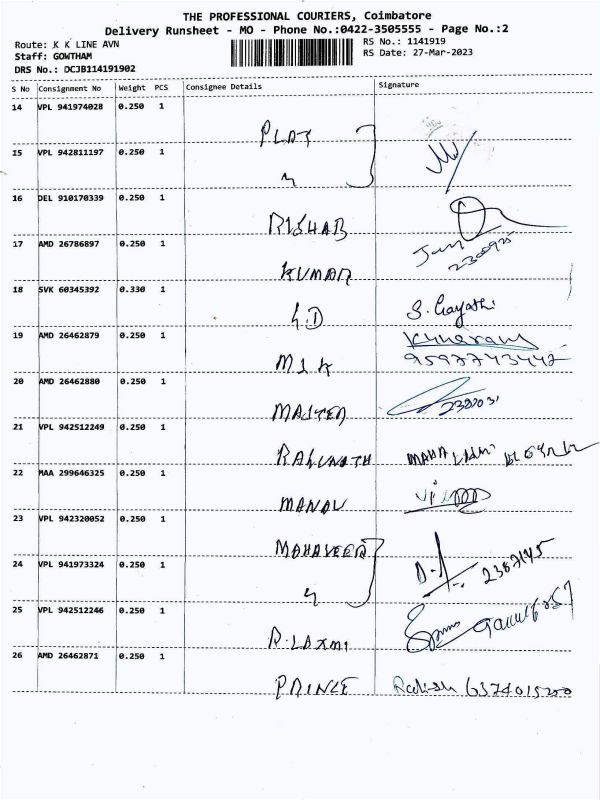 THE PROFESSIONAL COURIERS, Coimbatore
Delivery Runsheet - MO - Phone No.:0422-3505555 - Page No.:2
Route: K K LINE AVN
RS No.: 1141919
Staff: GOWTHAM
RS Date: 27-Mar-2023
DRS No.: DCJB114191902
S No Consignment No Weight PCS Consignee Details Signature
14 VPL 941974028 0.250 1
PLAY
15 VPL 942811197 0.250 1
16 DEL 910170339 0.250 1
RISHAB
17 AMD 26786897 0.250 1
KUMAR
18 SVK 60345392 0.330 1
G.D S. Gayathi
19 AMD 26462879 0.250 1
20 AMD 26462880 0.250 1
MASTER
21 VPL 942512249 0.250 1
RAGUNATH MAHA LAXMI
22 MAA 299646325 0.250 1
MANAV
23 VPL 942320052 0.250 1
MAHAVEER
24 VPL 941973324 0.250 1
2387145
25 VPL 942512246 0.250 1
R.LAXMI
26 AMD 26462871 0.250 1
PRINCE Rakesh 6374015200